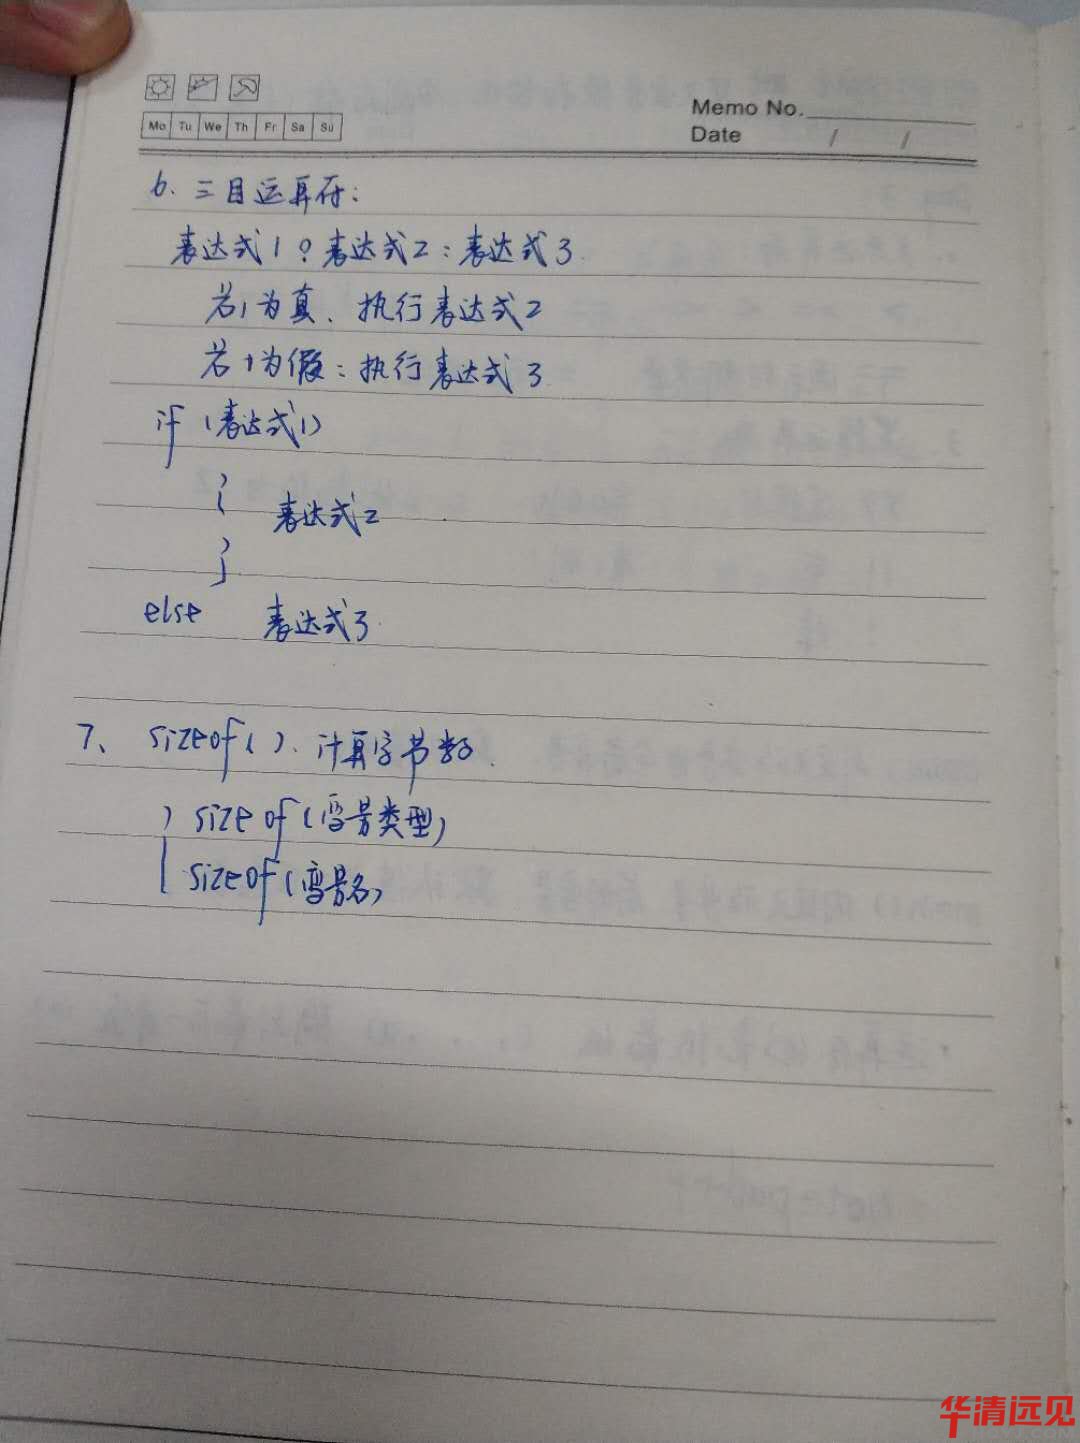 Memo No.
Mo Tu We Th Fr Sa Su
Date / /
6、三目运算符：
表达式1？表达式2：表达式3
若1为真、执行表达式2
若1为假：执行表达式3
if（表达式1）
{
表达式2
}
else 表达式3
7、sizeof( ). 计算字节数.
sizeof(变量类型)
sizeof(变量名)
华清远见
HQYJ.COM